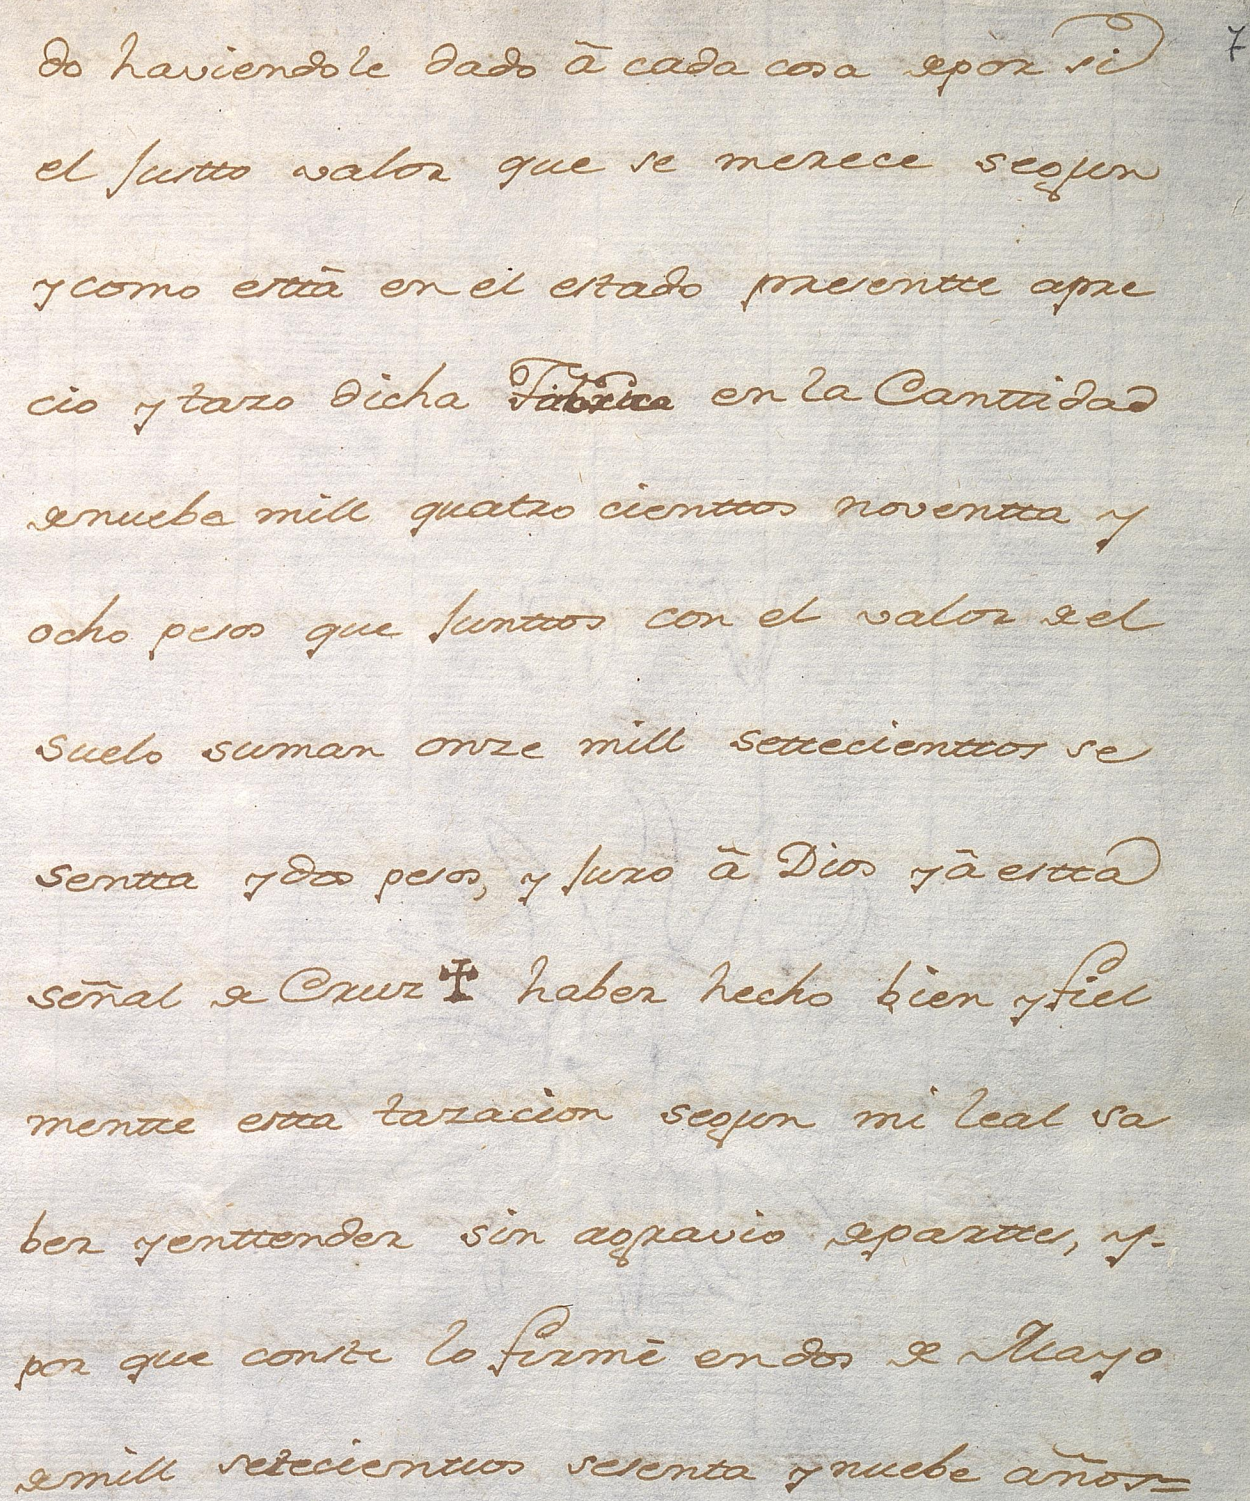 7
do haviendole dado â cada cosa de por si
el Justto valor que se merece segun
y como esttâ en el estado presentte apre
cio y tazo dicha Fabrica en la Canttidad
de nuebe mill quatro cienttos noventta y
ocho pesos que Junttos con el valor de el
suelo suman onze mill settecienttos se
sentta y dos pesos, y Juro â Dios y â estta
señal de Cruz ✝ haber hecho bien y fiel
mentte estta tazacion segun mi leal sa
ber y enttender sin agravio de parttes, y-
por que conste lo firmê en dos de Mayo
de mill setecienttos sesenta y nuebe años=